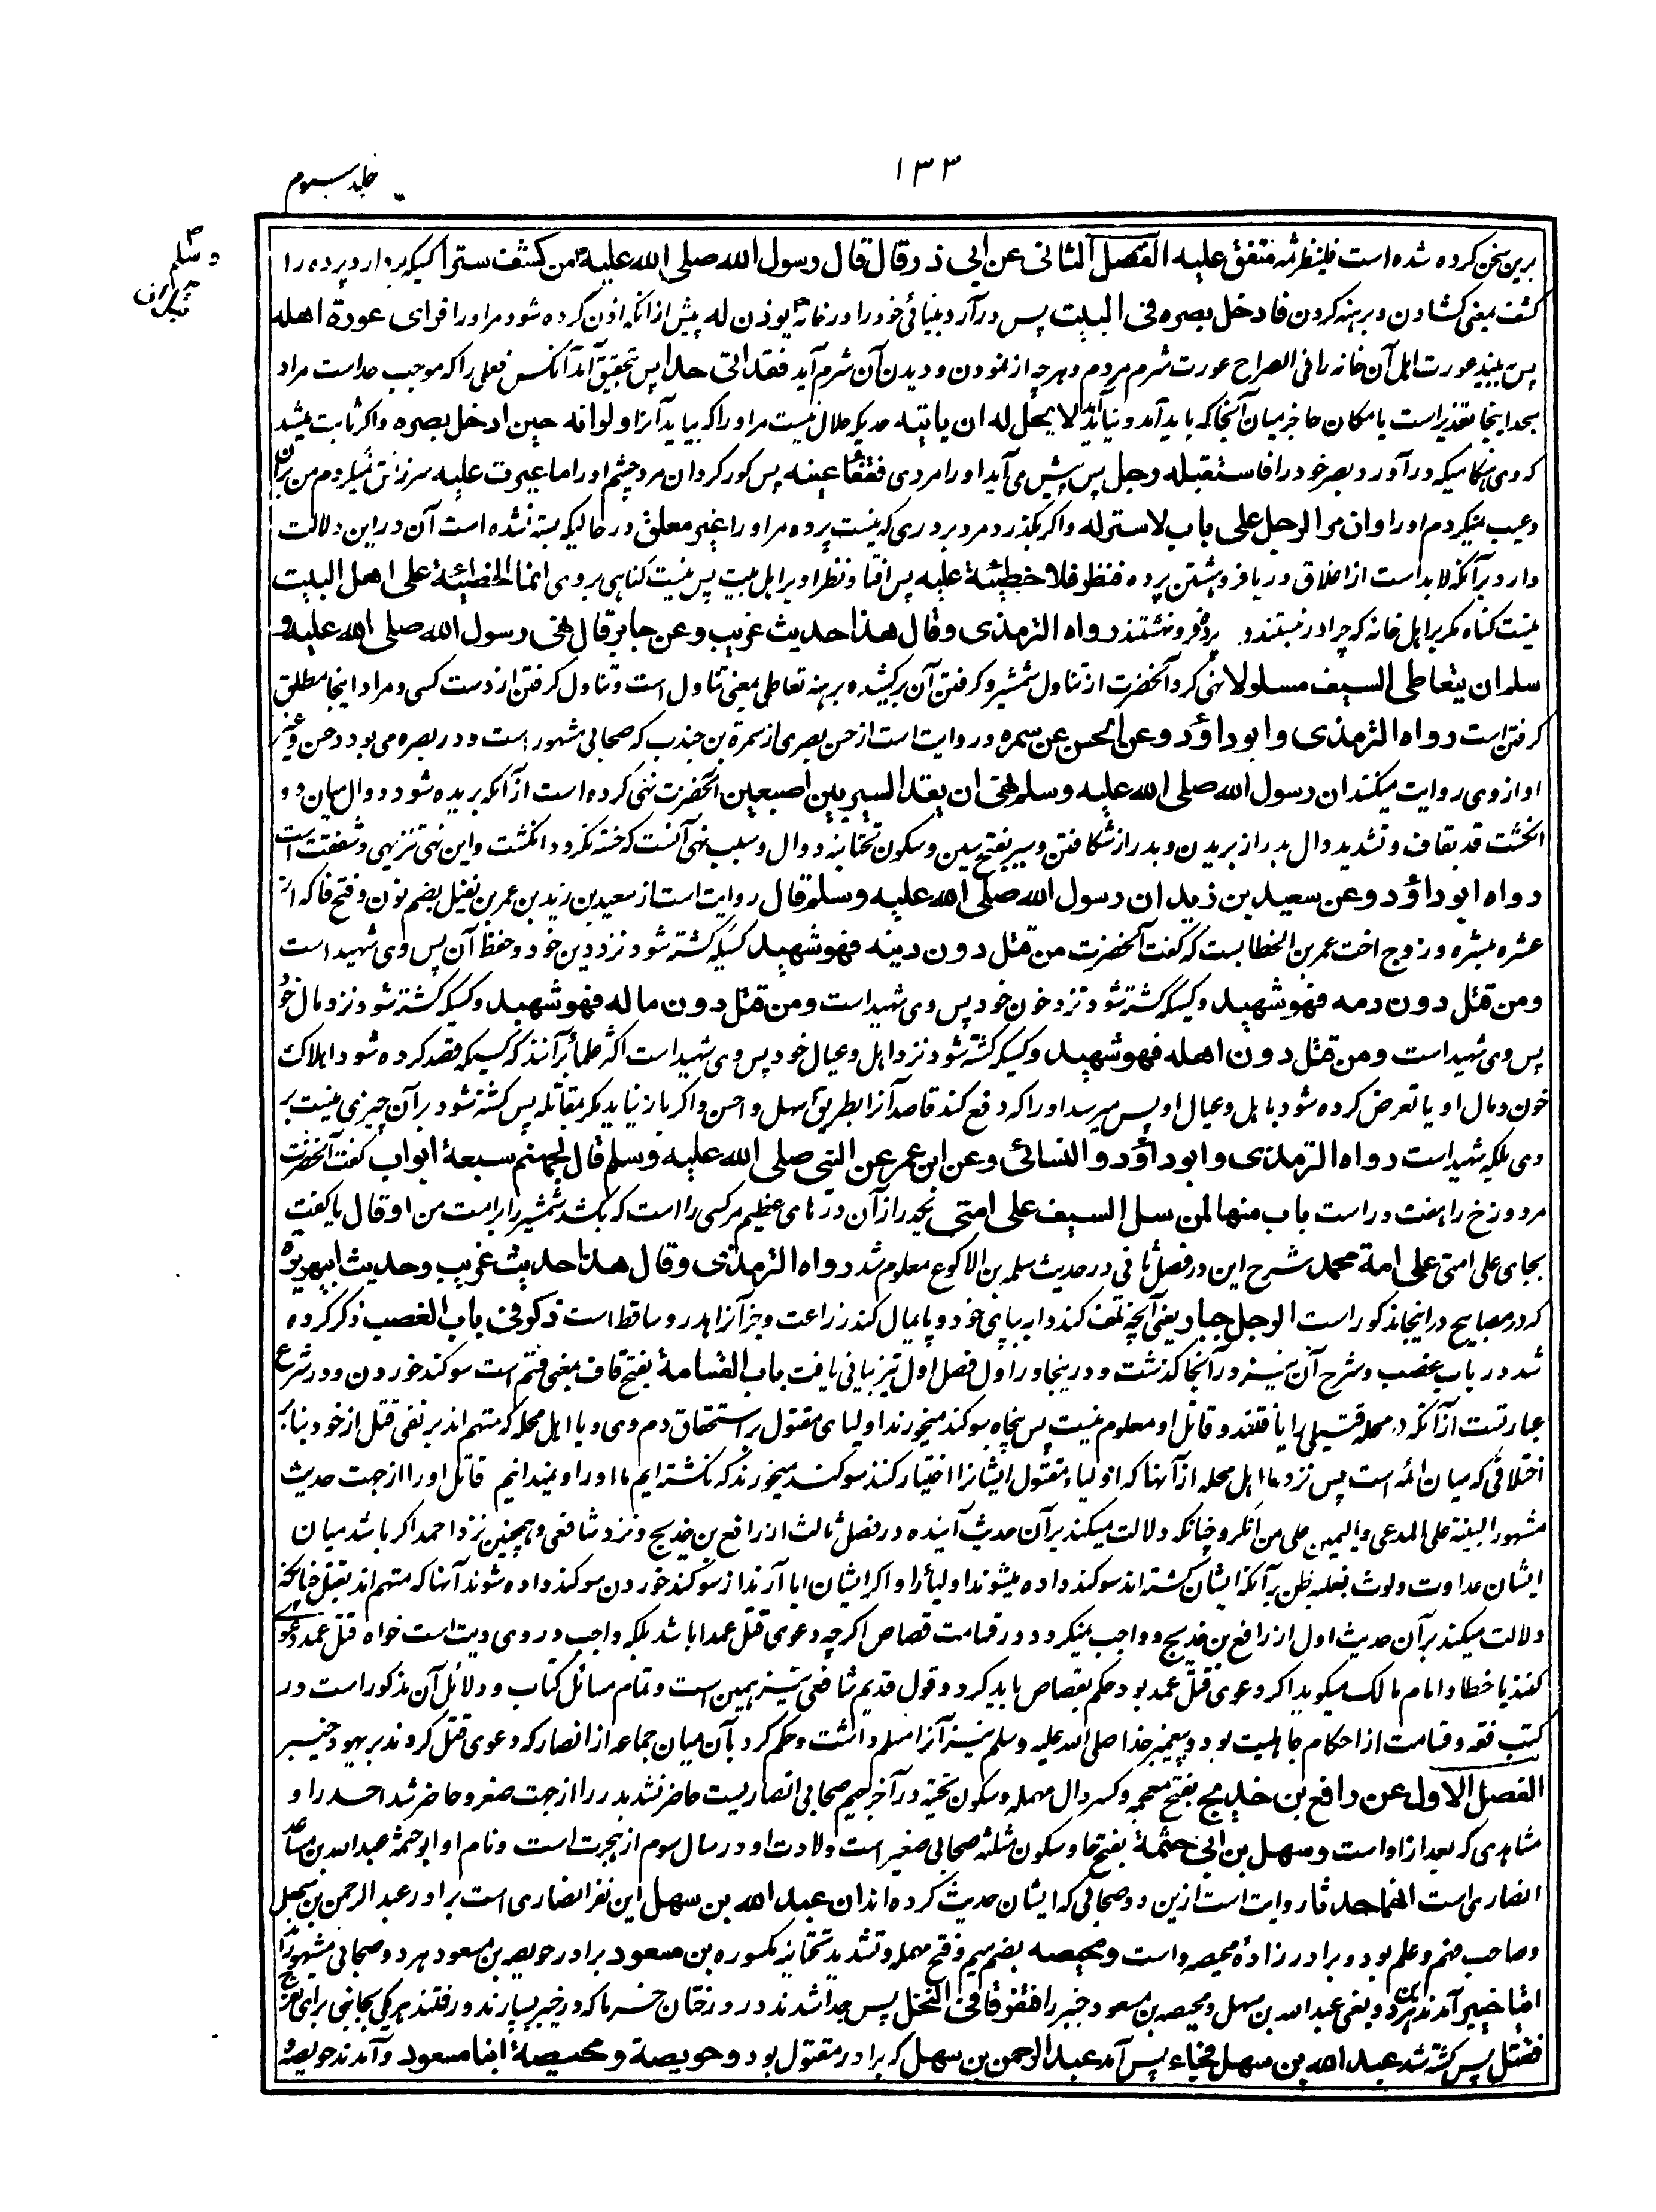 ۱۳۳
جلد سیوم
وسلم
برین سخن کرده شده است فلینظر ثمه متفق علیه الفصل الثانی عن ابی ذر قال قال رسول الله صلی الله علیه من کشف سترا کسیکه بردارد پرده را
کشف بمعنی کشادن و برهنه کردن فادخل بصره فی البیت پس درآرد بینائی خود را در خانه یوذن له پیش از آنکه اذن کرده شود مر او را فرای عورة اهله
پس ببیند عورت اهل آن خانه را فی الصراح عورت شرم مردم و هرچه از نمودن و دیدن آن شرم آید فقد اتی حدا پس بتحقیق آمد آنکس فعلی را که موجب حد است مراد
بحد اینجا تعذیر است یا مکان حاجز میان آنجا که باید آمد و نیاید لا یحل له ان یاتیه حدیکه حلال نیست مر او را که بیاید آنرا ولو انه حین ادخل بصره و اکر ثابت میشد
که وی هنکامیکه درآورد بصر خود را فاستقبله رجل پس پیش می آید او را مردی ففقأ عینه پس کور کردان مرد چشم او را ما عیرت علیه سرزنش نمیکردم من بران
و عیب نمیکردم او را وان مر الرجل علی باب لا ستر له و اکر بکذرد مرد بر دری که نیست پرده مر او را غیر مغلق در حالیکه بسته نشده است آن در این دلالت
دارد برآنکه لابد است از اغلاق در یا فروهشتن پرده فنظر فلا خطیئة علیه پس افتاد نظر او بر اهل بیت پس نیست کناهی بر وی انما الخطیئة علی اهل البیت
نیست کناه مکر بر اهل خانه که چرا در نبستند و پرده فرونهشتند رواه الترمذی وقال هذا حدیث غریب وعن جابر قال نهی رسول الله صلی الله علیه و
سلم ان یتعاطی السیف مسلولا نهی کرد آنحضرت از تناول شمشیر و کرفتن آن برکشیده و برهنه تعاطی بمعنی تناول است و تناول کرفتن از دست کسی و مراد اینجا مطلق
کرفتن است رواه الترمذی وابوداؤد وعن الحسن عن سمره و روایت است از حسن بصری از سمرة بن جندب که صحابی مشهور است و در بصره می بود و حسن و غیر
او از وی روایت میکنند ان رسول الله صلی الله علیه وسلم نهی ان یقد السیر بین اصبعین آنحضرت نهی کرده است از آنکه بریده شود دوال میان دو
انکشت قد بقاف و تشدید دال بدراز بریدن و بدراز شکافتن و سیر بفتح سین و سکون تحتانیه دوال و سبب نهی آنست که خسته نکردد انکشت و این نهی تنزیهی و شفقت است
رواه ابوداؤد وعن سعید بن زید ان رسول الله صلی الله علیه وسلم قال روایت است از سعید بن زید بن عمر بن نفیل بضم نون و فتح فا که از
عشره مبشره و زوج اخت عمر بن الخطاب است که کفت آنحضرت من قتل دون دینه فهو شهید کسیکه کشته شود نزد دین خود و حفظ آن پس وی شهید است
ومن قتل دون دمه فهو شهید و کسیکه کشته شود نزد خون خود پس وی شهید است ومن قتل دون ماله فهو شهید و کسیکه کشته شود نزد مال خود
پس وی شهید است ومن قتل دون اهله فهو شهید و کسیکه کشته شود نزد اهل و عیال خود پس وی شهید است اکثر علما برآنند که کسیکه قصد کرده شود اهلاک
خون و مال او یا تعرض کرده شود باهل و عیال او پس میرسد او را که دفع کند قاصد آنرا بطریق اسهل و احسن و اکر باز نیاید مکر بمقاتله پس کشته شود بر آن چیزی نیست بر
وی بلکه شهید است رواه الترمذی وابوداؤد والنسائی وعن ابن عمر عن النبی صلی الله علیه وسلم قال لجهنم سبعة ابواب کفت آنحضرت
مر دوزخ را هفت در است باب منها لمن سل السیف علی امتی یکدر از آن درهای عظیم مر کسی را است که بکشد شمشیر را بر امت من او قال یا کفت
بجای علی امتی علی امة محمد شرح این در فصل ثانی در حدیث سلمه بن الاکوع معلوم شد رواه الترمذی وقال هذا حدیث غریب وحدیث ابیهریرة
که در مصابیح در اینجا مذکور است الرجل جبار یعنی آنچه تلف کند دابه بپای خود و پایمال کند زراعت و جز آنرا هدر و ساقط است ذکر فی باب الغصب ذکر کرده
شد در باب غصب و شرح آن نیز در آنجا کذشت و درینجا در اول فصل اول نیز بیانی یافت باب القسامة بفتح قاف بمعنی قسم است سوکند خوردن و در شرع
عبارتست از آنکه در محله قتیلی را یافتند و قاتل او معلوم نیست پس پنجاه سوکند میخورند اولیای مقتول بر استحقاق دم وی و یا اهل محله که متهم اند بر نفی قتل از خود بنابر
اختلافی که میان ائمه است پس نزد ما اهل محله از آنها که اولیاء مقتول ایشانرا اختیار کنند سوکند میخورند که نکشته ایم ما او را و نمیدانیم قاتل او را از جهت حدیث
مشهور البینة علی المدعی والیمین علی من انکر و چنانکه دلالت میکند برآن حدیث آینده در فصل ثالث از رافع بن خدیج و نزد شافعی و همچنین نزد احمد اکر باشد میان
ایشان عداوت و لوث بغلبه ظن برآنکه ایشان کشته اند سوکند داده میشوند اولیأ را و اکر ایشان ابا آرند از سوکند خوردن سوکند داده شوند آنها که متهم اند بقتل چنانکه
دلالت میکند برآن حدیث اول از رافع بن خدیج و واجب نمیکردد در قسامت قصاص اکرچه دعوی قتل عمدا باشد بلکه واجب در وی دیت است خواه قتل عمد دعوی
کنند یا خطا و امام مالک میکوید اکر دعوی قتل عمد بود حکم بقصاص باید کرد و قول قدیم شافعی نیز همین است و تمام مسائل کتاب و دلائل آن مذکور است در
کتب فقه و قسامت از احکام جاهلیت بود و پیغمبر خدا صلی الله علیه وسلم نیز آنرا مسلم داشت و حکم کرد بآن میان جماعه از انصار که دعوی قتل کردند بر یهود خیبر
الفصل الاول عن رافع بن خدیج بفتح معجمه و کسر دال مهمله و سکون تحتیه در آخر جیم صحابی انصاریست حاضر نشد بدر را از جهت صغر و حاضر شد احد را و
مشاهدی که بعد از او است وسهل بن ابی حثمة بفتح حا و سکون مثلثه صحابی صغیر است ولادت او در سال سوم از هجرت است و نام او ابوحثمة عبد الله بن ساعد
انصاری است انهما حدثا روایت است ازین دو صحابی که ایشان حدیث کرده اند ان عبد الله بن سهل این نفر انصاری است برادر عبد الرحمن بن سهل
و صاحب فهم و علم بود و برادرزادهٔ محیصه است ومحیصه بضم میم و فتح مهمله و تشدید تحتانیه مکسوره بن مسعود برادر حویصه بن مسعود هر دو صحابی مشهور اند
اتیا خیبر آمدند هر دو یعنی عبد الله بن سهل و محیصه بن مسعود خیبر را فتفرقا فی النخل پس جدا شدند در درختان خرما که در خیبر بسیارند و رفتند هر یکی بجانبی برای تفرج
فقتل پس کشته شد عبد الله بن سهل فجاء پس آمد عبد الرحمن بن سهل که برادر مقتول بود وحویصة ومحیصة ابنا مسعود و آمدند حویصه و